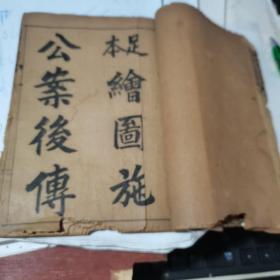 足本繪圖施
公案後傳